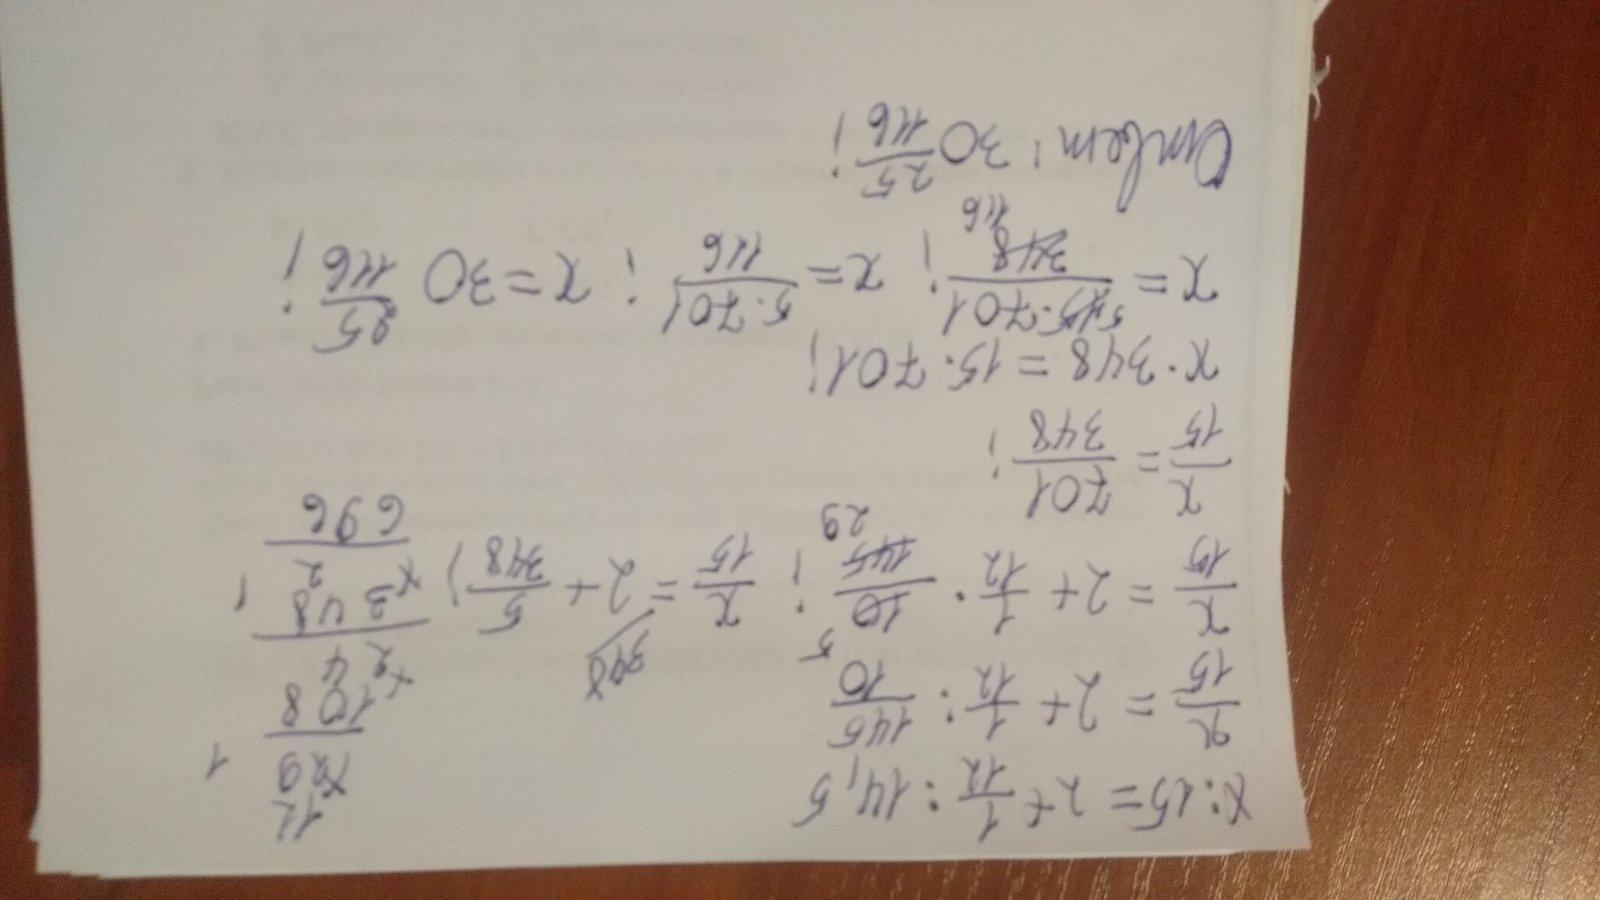 x:15 = 2+ 1/12 : 14,5
x/15 = 2+ 1/12 : 145/10
x/15 = 2+ 1/12 · 10/145 ; x/15 = 2+ 5/348 ;
5
29
348
x/15 = 701/348 ;
x·348 = 15·701;
x = 15·701/348 ; x = 5·701/116 ; x = 30 25/116 ;
5
116
Ответ: 30 25/116 ;
12
x29
1
108
x24
348
x 2
1
696